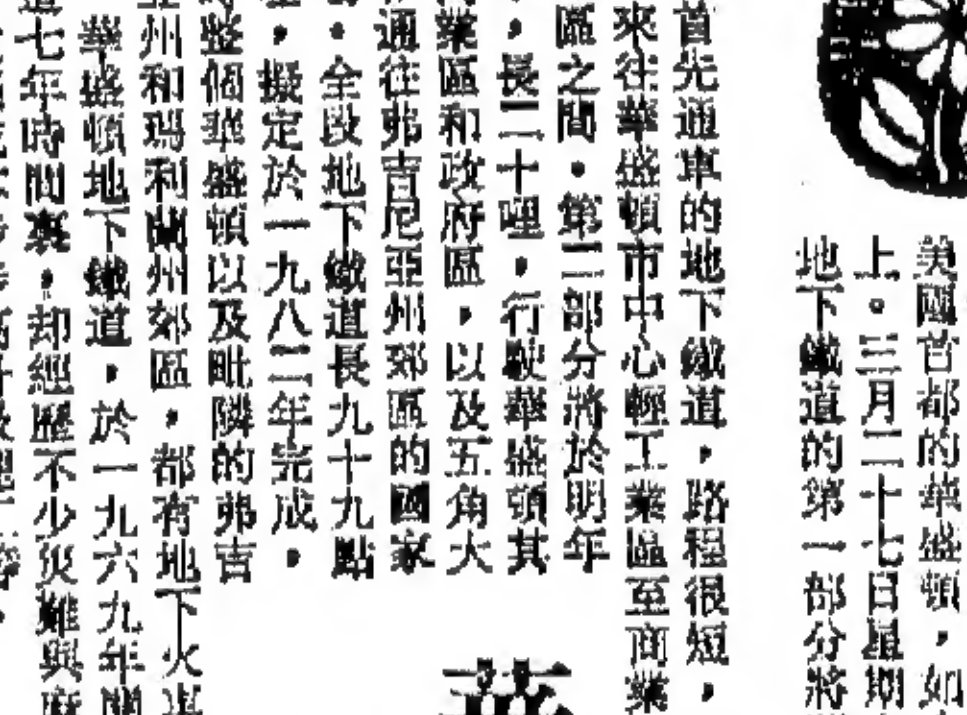 美國首都的華盛頓，如
上。三月二十七日星期
地下鐵道的第一部分將
首先通車的地下鐵道，路程很短，
來往華盛頓市中心輕工業區至商業
區之間．第二部分將於明年
，長二十哩，行駛華盛頓其
業區和政府區，以及五角大
通往弗吉尼亞州郊區的國家
．全段地下鐵道長九十九點
，擬定於一九八二年完成，
整個華盛頓以及毗隣的弗吉
州和瑪利蘭州郊區，都有地下火車
華盛頓地下鐵道，於一九六九年開
七年時間裏，却經歷不少災難與麻